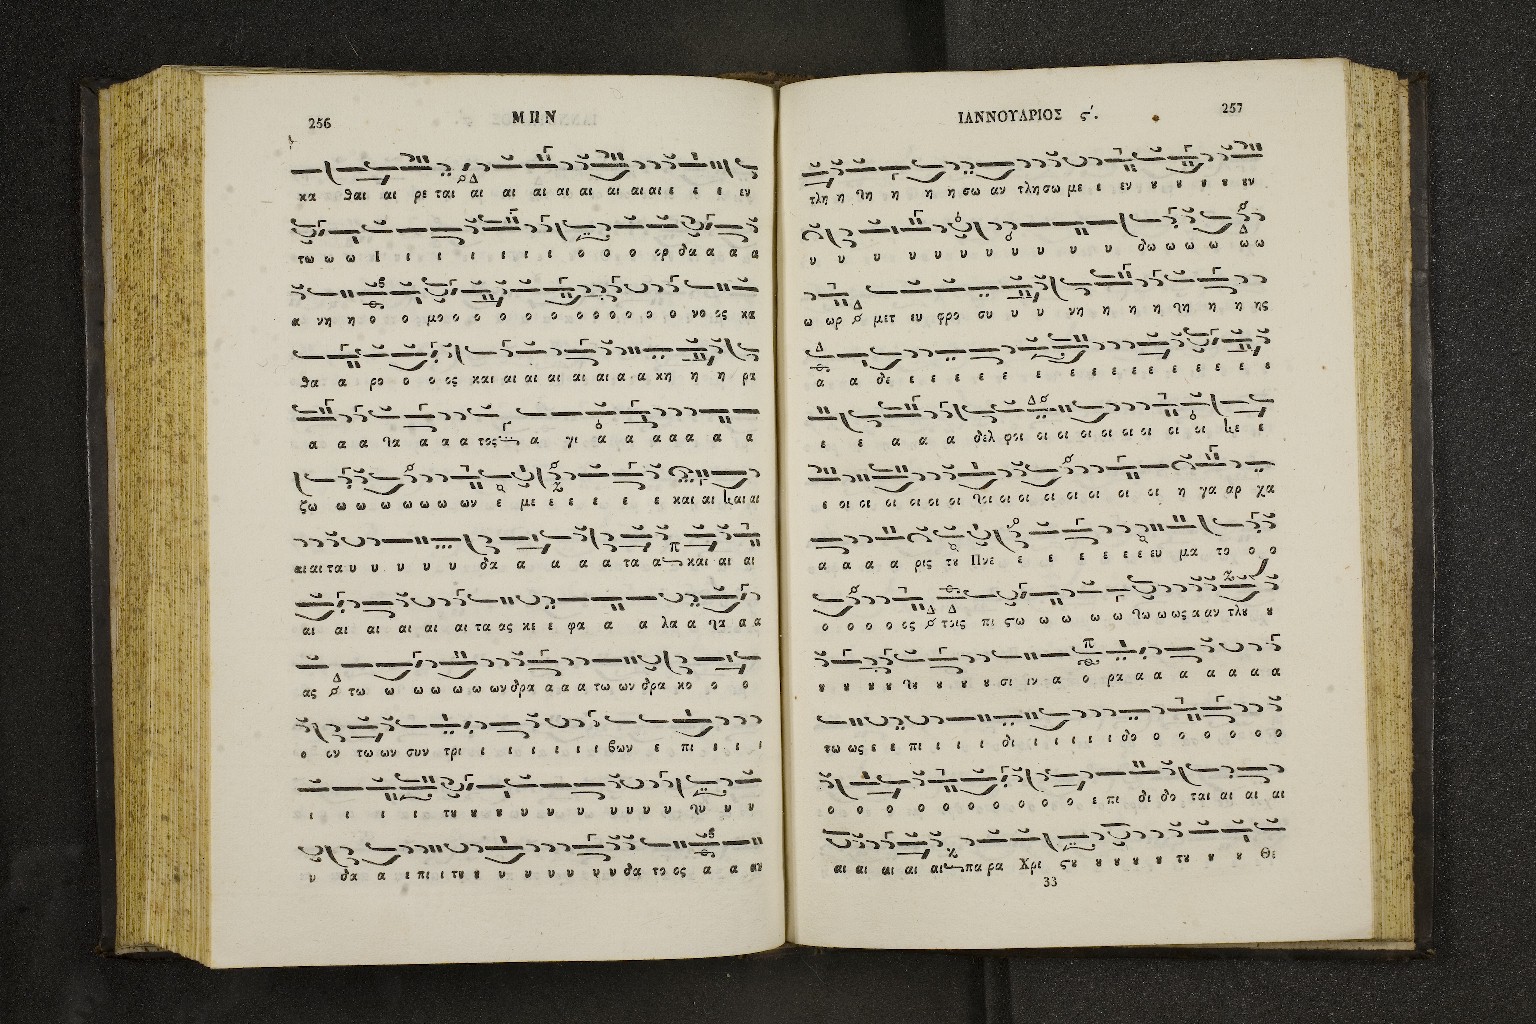 256
ΜΗΝ
κα θαι αι ρε ται αι αι αι αι αι αι αι αι ε ε ε εν
τω ω ω ι ι ι ι ι ι ι ι ο ο ο ορ δα α α α
α νη η ο ο μο ο ο ο ο ο ο ο ο ο ο νο ος κα
θα α ρο ο ο ος και αι αι αι αι αι αι α α κη η η ρα
α α α τα α α α τος α γι α α α α α α α
ζω ω ω ω ω ω ω ων ε με ε ε ε ε ε και αι και αι
αι αι τα υ υ υ υ υ δα α α α α τα α και αι αι
αι αι αι αι αι αι αι τα ας κε ε φα α α λα α τα α α
ας τω ω ω ω ω ω ων δρα α α α τω ων δρα κο ο ο
ο ον τω ων συν τρι ι ι ι ι ι ι βων ε πι ι ι ι
ι ι ι ι του ου ου ου υ υ υ υ υ τυ υ υ
υ δα α ε πι ι του ου υ υ υ υ υ υ δα το ος α α αυ
ΙΑΝΝΟΥΑΡΙΟΣ ϛʹ.
257
τλη η τη η η η σω αν τλη σω με ε εν ου ου ου ου εν
υ υ υ υ υ υ υ υ υ υ υ δω ω ω ω ω ω
ω ωρ μετ ευ φρο συ υ υ νη η η η τη η η ης
α α δε ε ε ε ε ε ε ε ε ε ε ε ε ε ε ε ε
ε ε α α α δελ φοι οι οι οι οι οι οι οι οι κε ε
ε οι οι οι οι οι οι τοι οι οι οι οι οι οι οι η γα αρ χα
α α α α ρις του Πνε ε ε ε ε ε ε ευ μα το ο ο
ο ο ο ο ος τοις πι ϛω ω ω ω ω τω ω ως κ αν τλου ου
ου ου ου του ου ου ου ου σι ιν α ο ρα α α α α α α α
τω ως ε ε πι ι ι ι δι ι ι ι ι δο ο ο ο ο ο ο
ο ο ο ο ο ο ο ο ο ο ε πι δι δο ται αι αι αι
αι αι αι αι αι πα ρα Χρι ϛου ου ου ου ου του ου ου ου Θε
33